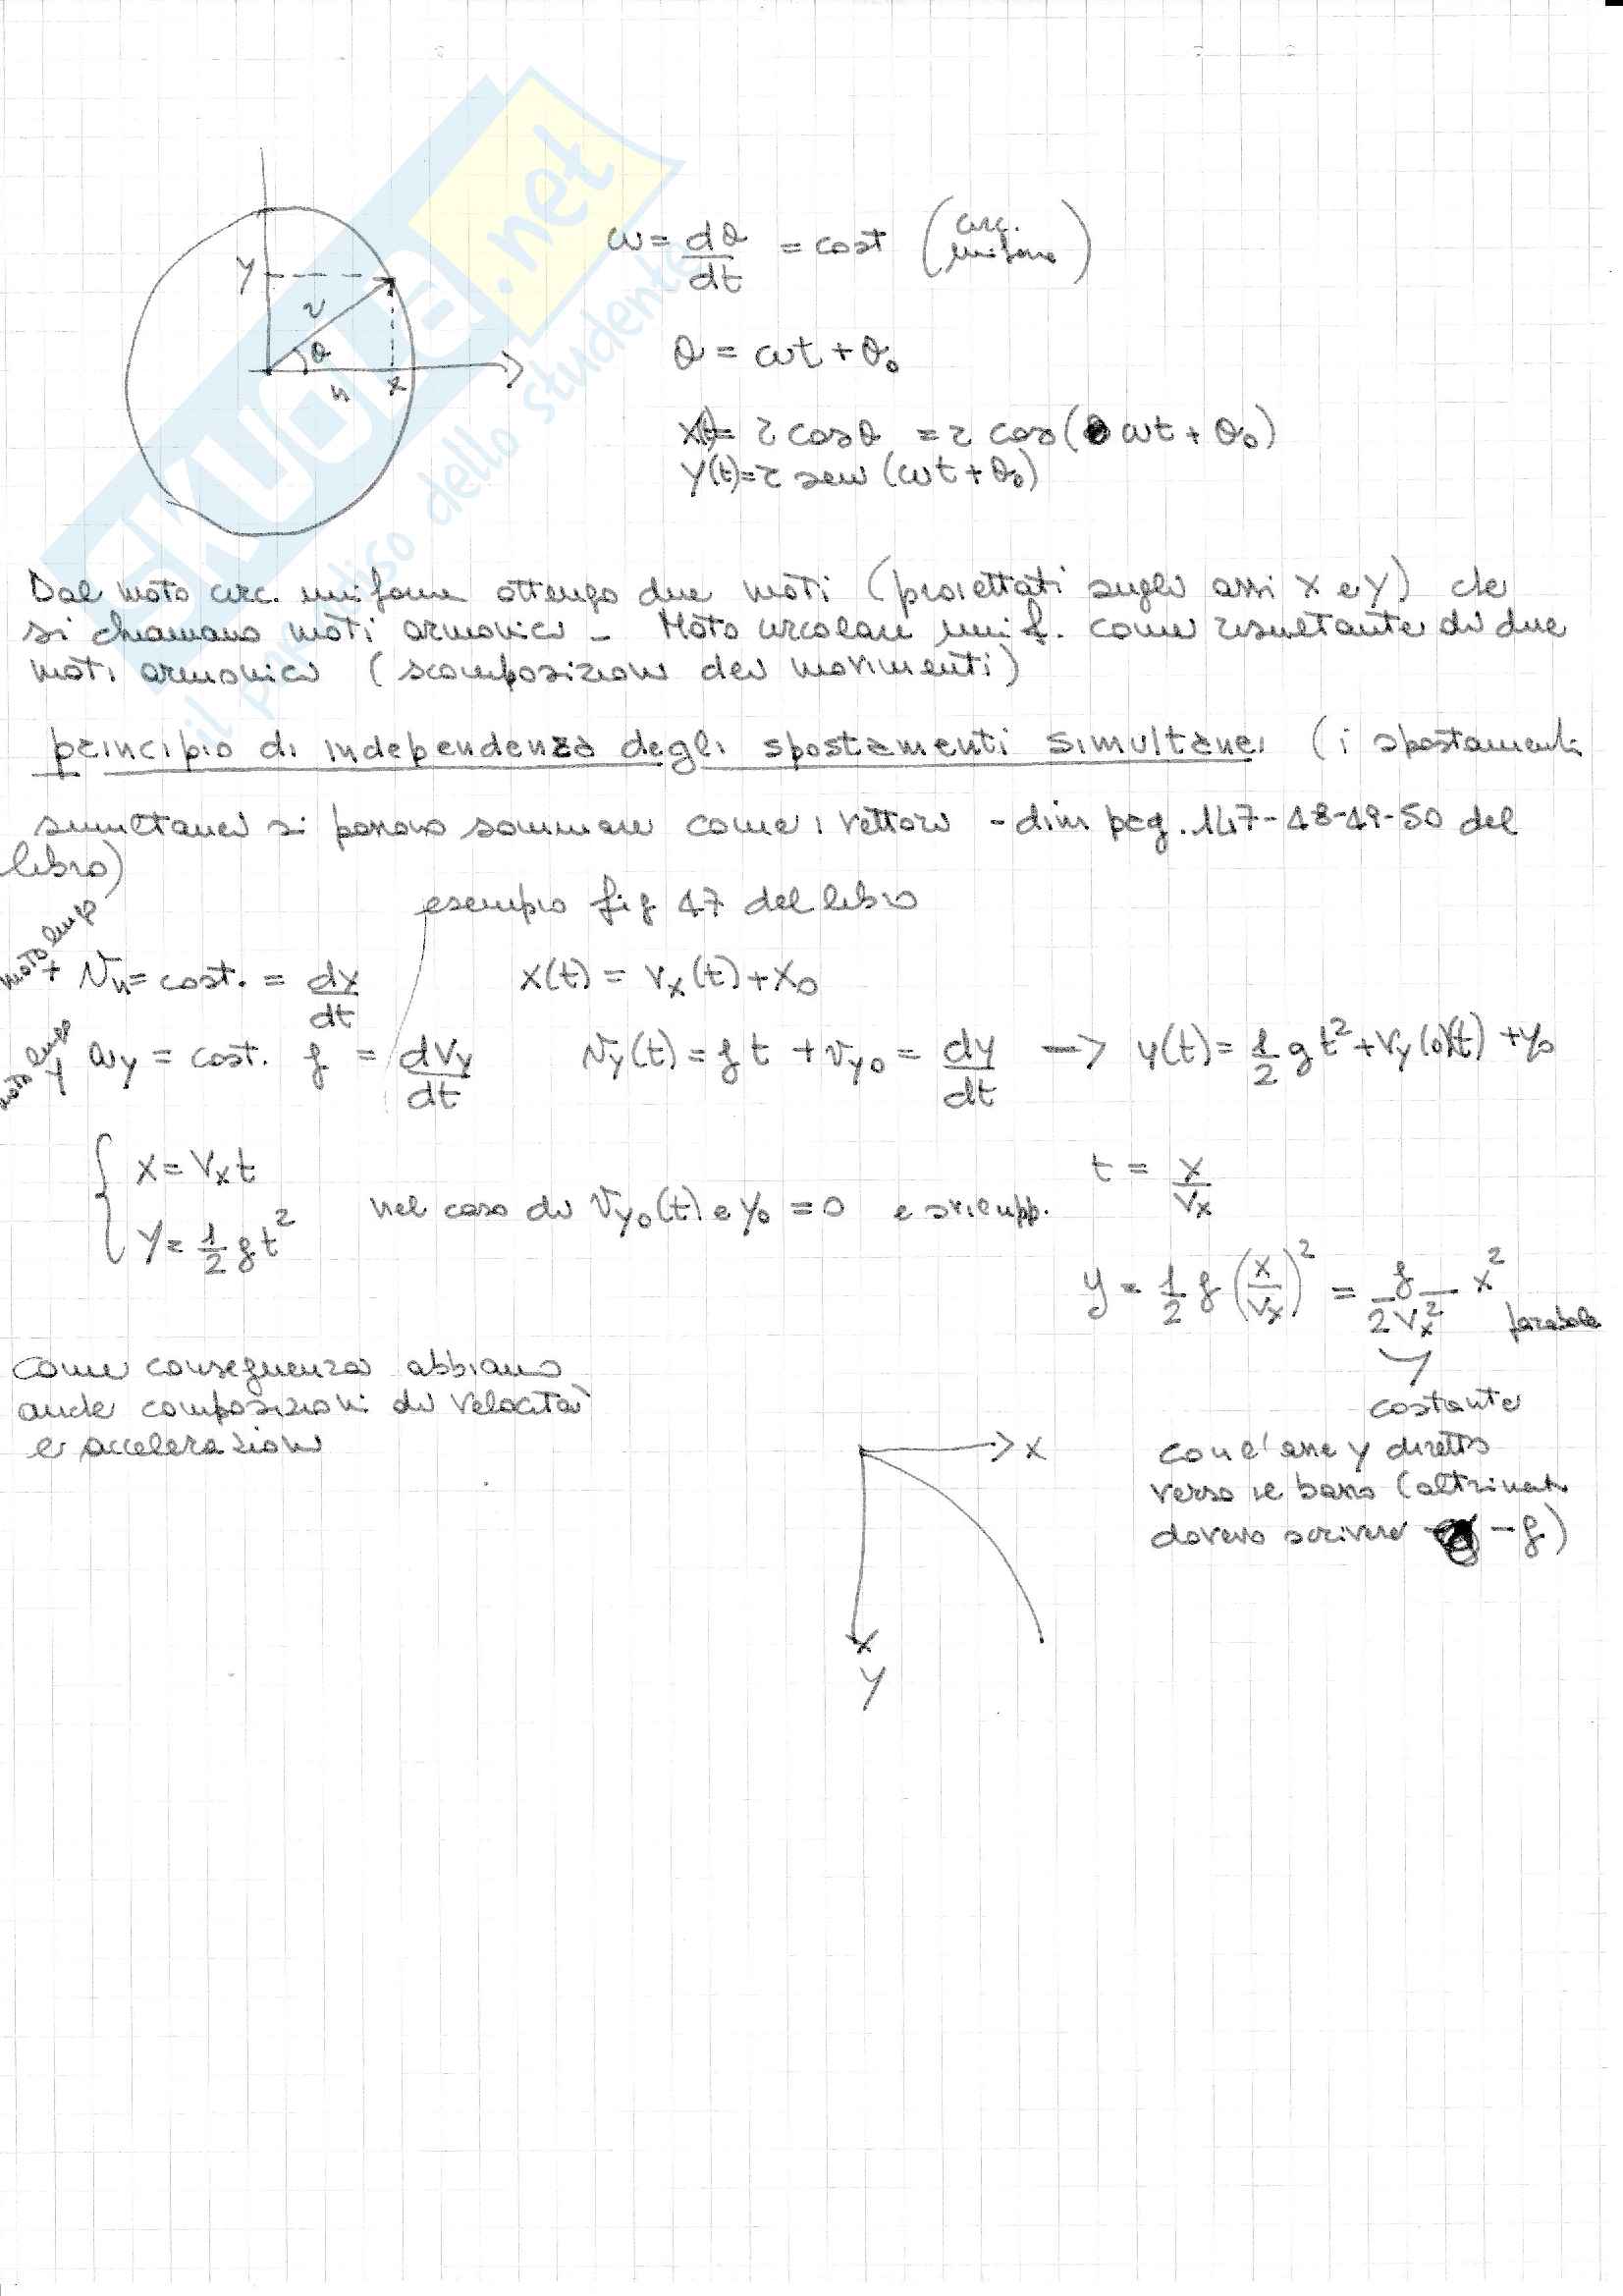 SKUOLA.net
il paradiso dello studente
y
r
θ
x
ω = dθ/dt = cost (circ. uniforme)
θ = ωt + θ₀
x(t) = r cosθ = r cos(ωt + θ₀)
y(t) = r sen (ωt + θ₀)
Dal moto circ. uniforme ottengo due moti (proiettati sugli assi x e y) che
si chiamano moti armonici - Moto circolare unif. come risultante di due
moti armonici (scomposizioni dei movimenti)
principio di independenza degli spostamenti simultanei (i spostamenti
simultanei si possono sommare come i vettori - dim pag. 147-48-49-50 del
libro)
esempio fig 47 del libro
moto lungo x
Vx = cost. = dx/dt x(t) = Vx (t) + x₀
moto lungo y
ay = cost. g = dVy/dt Vy(t) = g t + Vy₀ = dy/dt -> y(t) = 1/2 g t² + Vy(0)(t) + y₀
{ x = Vx t
y = 1/2 g t²
nel caso di Vy₀(t) e y₀ = 0 e svilupp.
t = x/Vx
y = 1/2 g (x/Vx)² = g/2Vx² x² parabola
costante
come conseguenza abbiamo
anche composizioni di velocità
e accelerazioni
x
y
con l'asse y diretto
verso il basso (altriment.
dovevo scrivere -g)